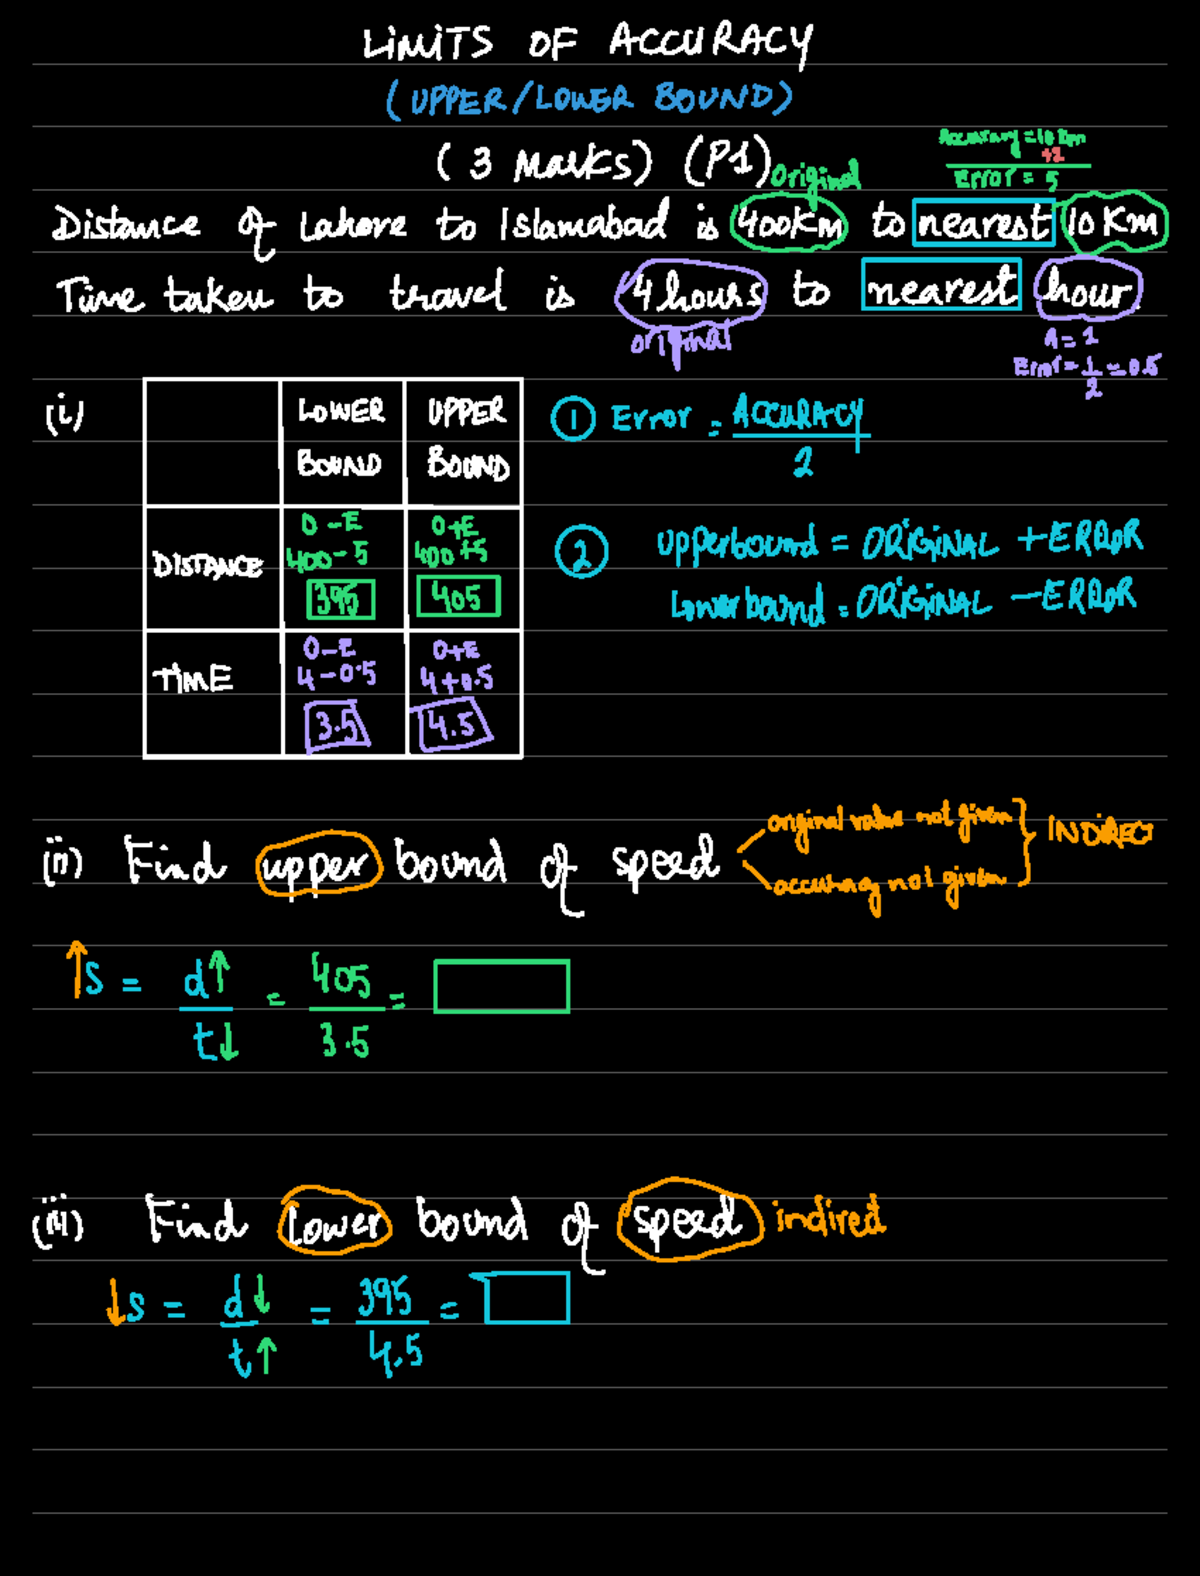 LIMITS OF ACCURACY
(UPPER/LOWER BOUND)
(3 Marks) (P1)
Accuracy = 10 Km
÷2
Error = 5
original
Distance of Lahore to Islamabad is 400Km to nearest 10 Km
Time taken to travel is 4 hours to nearest hour.
original
A = 1
Error = 1/2 = 0.5
(i)
LOWER BOUND
UPPER BOUND
DISTANCE
O - E
400 - 5
395
O+E
400+5
405
TIME
O-E
4-0.5
3.5
O+E
4+0.5
4.5
① Error = ACCURACY/2
② upperbound = ORIGINAL + ERROR
Lower bound = ORIGINAL - ERROR
(ii) Find upper bound of speed
original value not given
accuracy not given
} INDIRECT
↑S = d↑/t↓ = 405/3.5 =
(iii) Find Lower bound of speed indirect
↓S = d↓/t↑ = 395/4.5 =